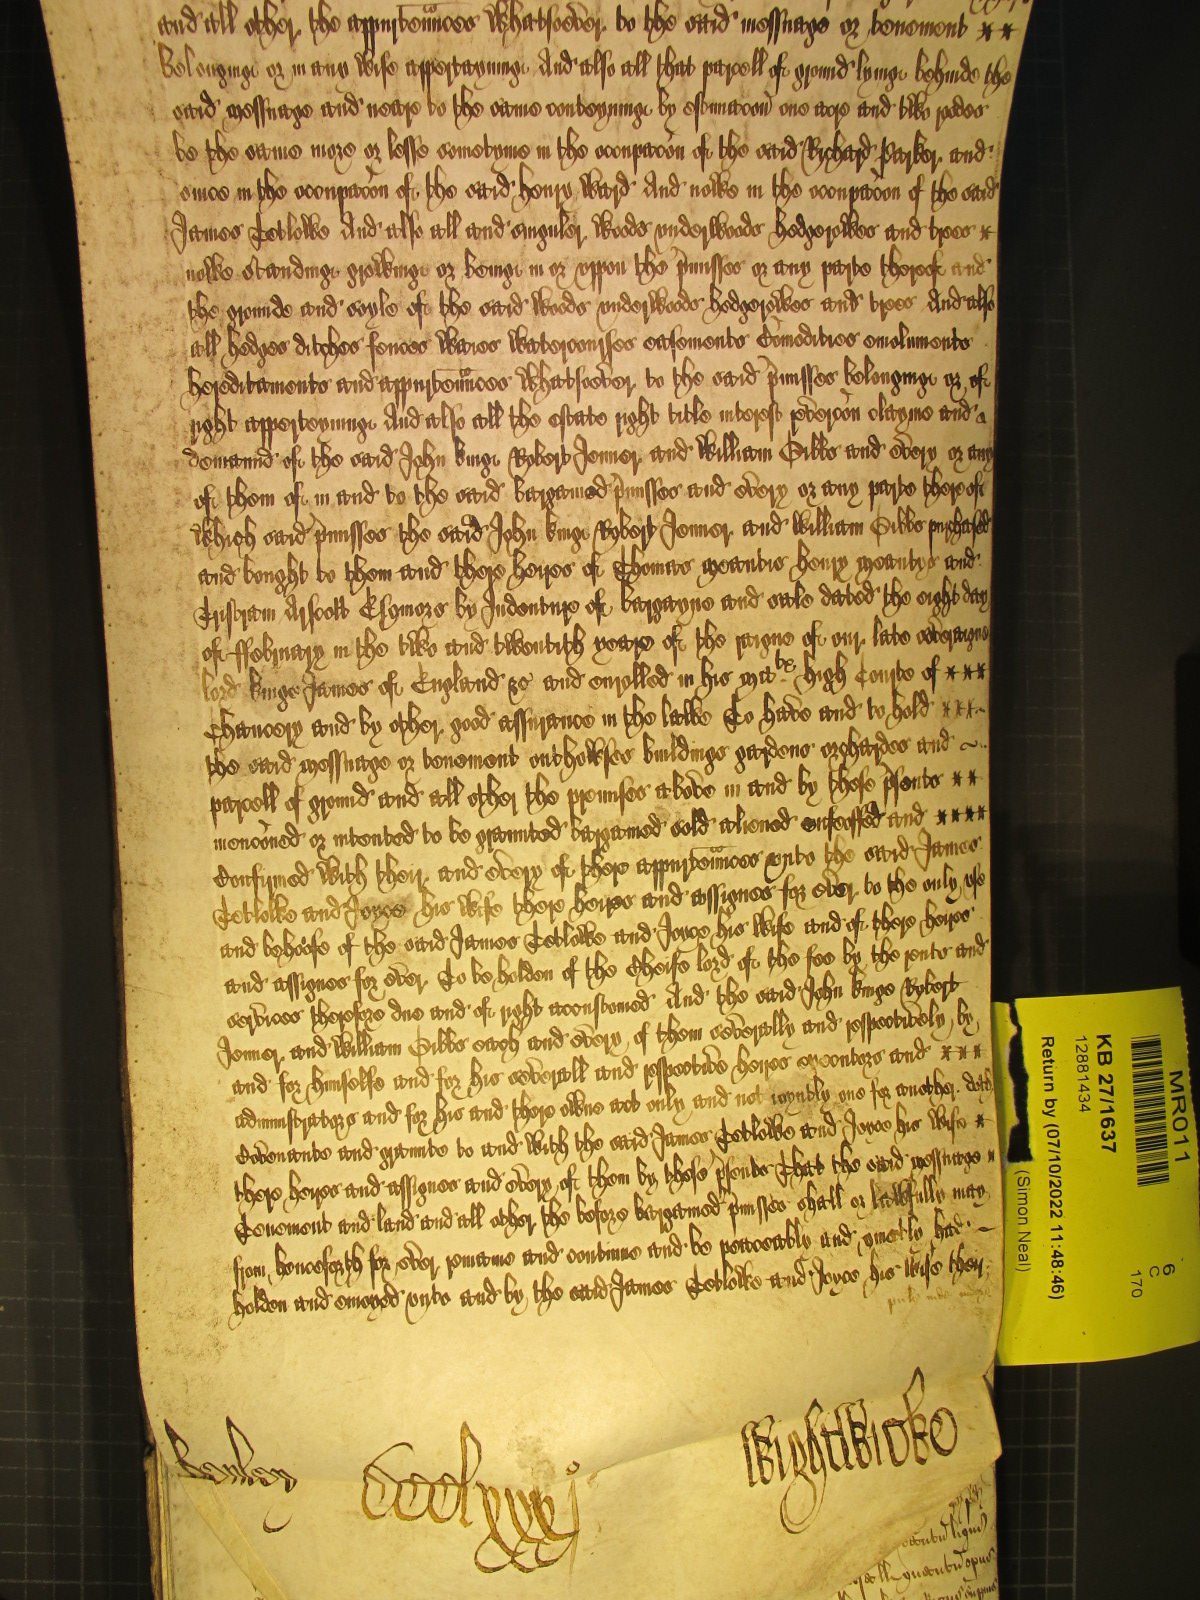 and all other the appurtennces whatsoever to the said messuage or tenement
belonginge or in any wise appertayninge And also all that parcell of ground lyinge behinde the
said messuage and neare to the same conteyninge by estimacon one acre and two roodes
be the same more or lesse sometyme in the occupacon of the said Richard Parker and
since in the occupacon of the said henry Ward And nowe in the occupacon of the said
James Tetlowe And also all and singuler woods underwoods hedgerowes and trees
nowe standinge growinge or beinge in or uppon the pmisses or any parte thereof and
the grounde and soyle of the said woods underwoods hedgerowes and trees And also
all hedges ditches fences waies watercourses easements Comodities emoluments
hereditaments and appurtennces whatsoever to the said pmisses belonginge or of
right apperteyninge And also all the estate right title interest revercon clayme and
demaund of the said John kinge Robert Jenner and William Gibbs and every or any
of them of in and to the said bargained pmisses and every or any parte thereof
which said pmisses the said John kinge Robert Jenner and William Gibbs purchased
and bought to them and there heires of Thomas Meautis henry Meautys and
Tristram Arscott Esquiors by Indenture of bargayne and sale dated the eight day
of ffebruary in the two and twentith yeare of the raigne of our late soveraigne
lord kinge James of England &c and enrolled in his mats high Courte of
Chancery and by other good assurance in the lawe To have and to hold
the said messuage or tenement outhowses buildings gardens orchardes and
parcell of ground and all other the premises above in and by these psents
menconed or intented to be graunted bargained sold aliened enfeoffed and
Confirmed with their and every of there appurtennces unto the said James
Tetlowe and Joyce his wife there heires and assignes for ever to the only use
and behoofe of the said James Tetlowe and Joyce his wife and of there heires
and assignes for ever To be holden of the Cheife lord of the fee by the rents and
services therefore due and of right accustomed And the said John kinge Robert
Jenner and William Gibbs each and every of them severally and respectively by
and for himselfe and for his severall and respective heires executors and
administrators and for his and there owne act only and not ioyntly one for another doth
Covenante and graunte to and with the said James Tetlowe and Joyce his wife
there heires and assignes and every of them by these psents That the said messuage
Tenement and land and all other the before bargained pmisses shall or lawfully may
from henceforth for ever remaine and continue and be peaceably and quietly had
holden and enioyed unto and by the said James Tetlowe and Joyce his wife their
ccclxxxj
Wightwicke
MR011
KB 27/1637
12881434
Return by (07/10/2022 11:48:46)
(Simon Neal)
6
C
170